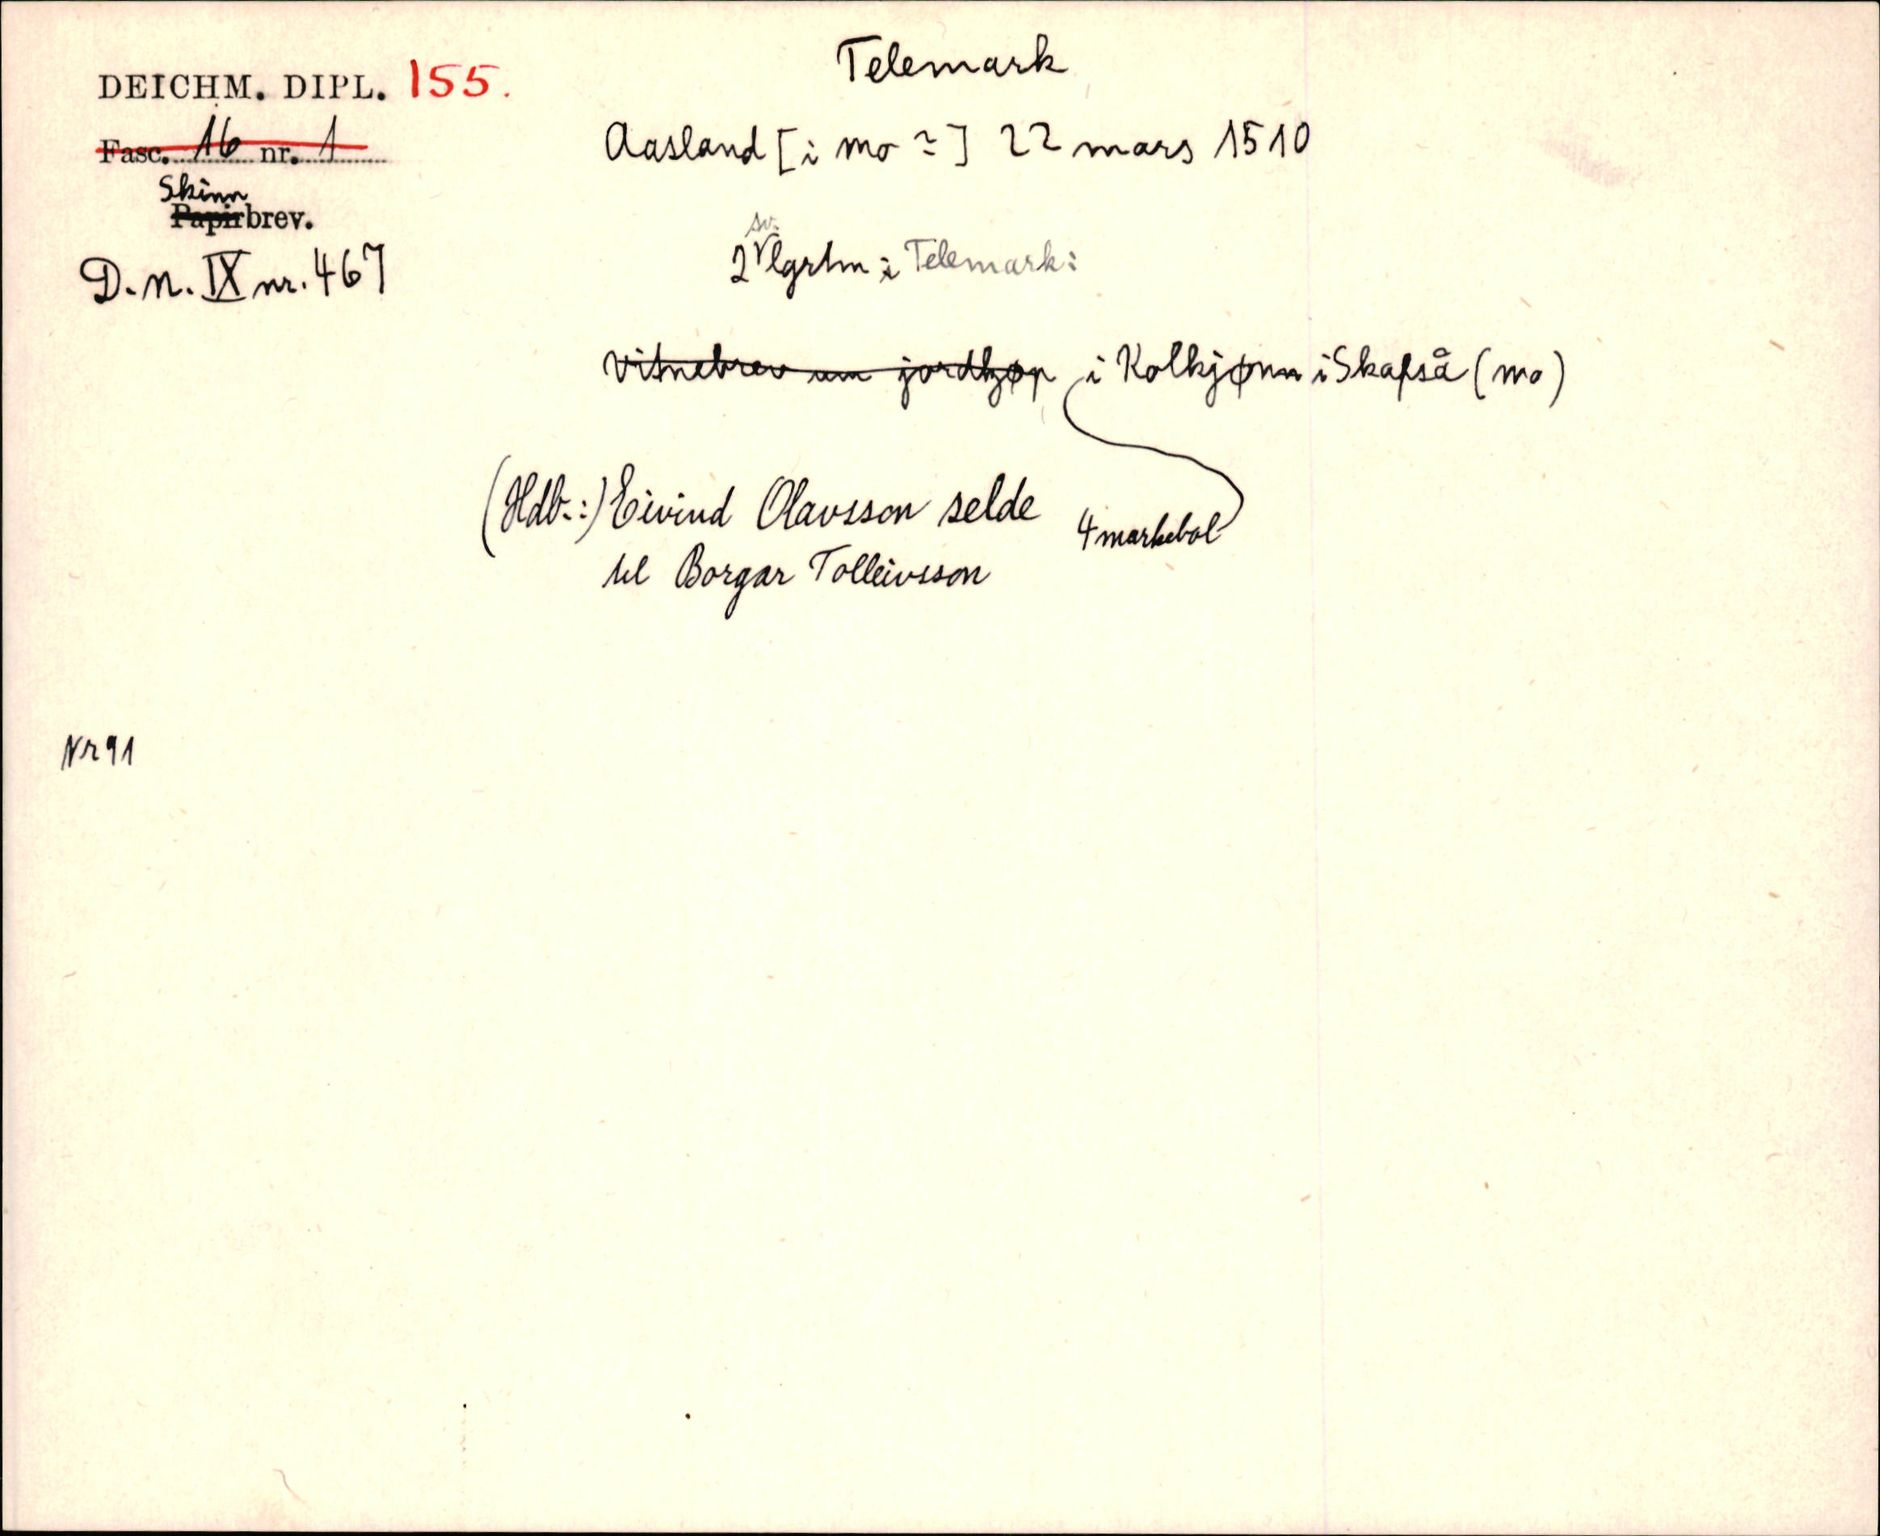 Telemark
DEICHM. DIPL. 155.
Fasc. 16 nr. 1
Aasland [i Mo ?] 22 mars 1510
Skinn
Papirbrev.
sv.
2 lgrtm i Telemark:
D.N. IX nr. 467
Vitnebrev um jordkjøp i Kolkjønn i Skafså (Mo)
(Hdb.:) Eivind Olavsson selde
4 markebol
til Borgar Tolleivsson
Nr 91